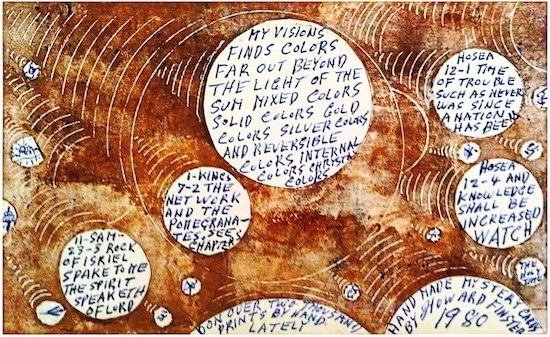 MY VISIONS
FINDS COLORS
FAR OUT BEYOND
THE LIGHT OF THE
SUM MIXED COLORS
SOLID COLORS GOLD
COLORS SILVER COLORS
AND REVERSIBLE
COLORS INTERNAL
COLORS CHRISTAL
COLORS
HOSEA
12-1 TIME
OF TROUBLE
SUCH AS NEVER
WAS SINCE
A NATION
HAS BEEN
1-KINGS
7-2 THE
NET WORK
AND THE
POMEGRANA-
TES. SEE
CHAPTERS
HOSEA
12-4 AND
KNOWLEDGE
SHALL BE
INCREASED
WATCH
11-SAM
23-3 ROCK
OF ISRIEL
SPAKE TO ME
THE SPIRIT
SPEAKETH
OF LORD
THE
HOLY
DON OVER TWO THOUSAND
PRINTS BY HAND
LATELY
HAND MADE MYSTERY CARDS
BY HOWARD FINSTER
1980